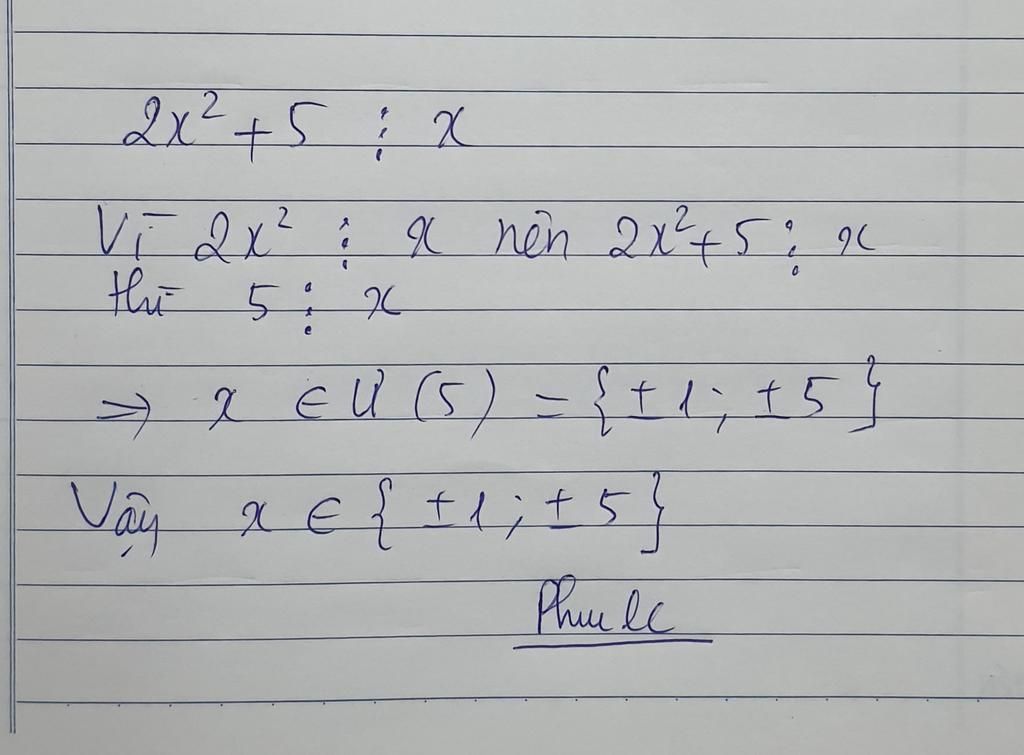 2x² + 5 ⋮ x
Vì 2x² ⋮ x nên 2x² + 5 ⋮ x
thì 5 ⋮ x
⇒ x ∈ Ư (5) = {±1; ±5}
Vậy x ∈ {±1; ±5}